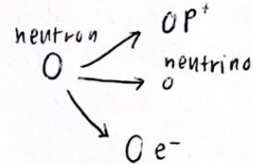 neutron
p⁺
neutrino
e⁻